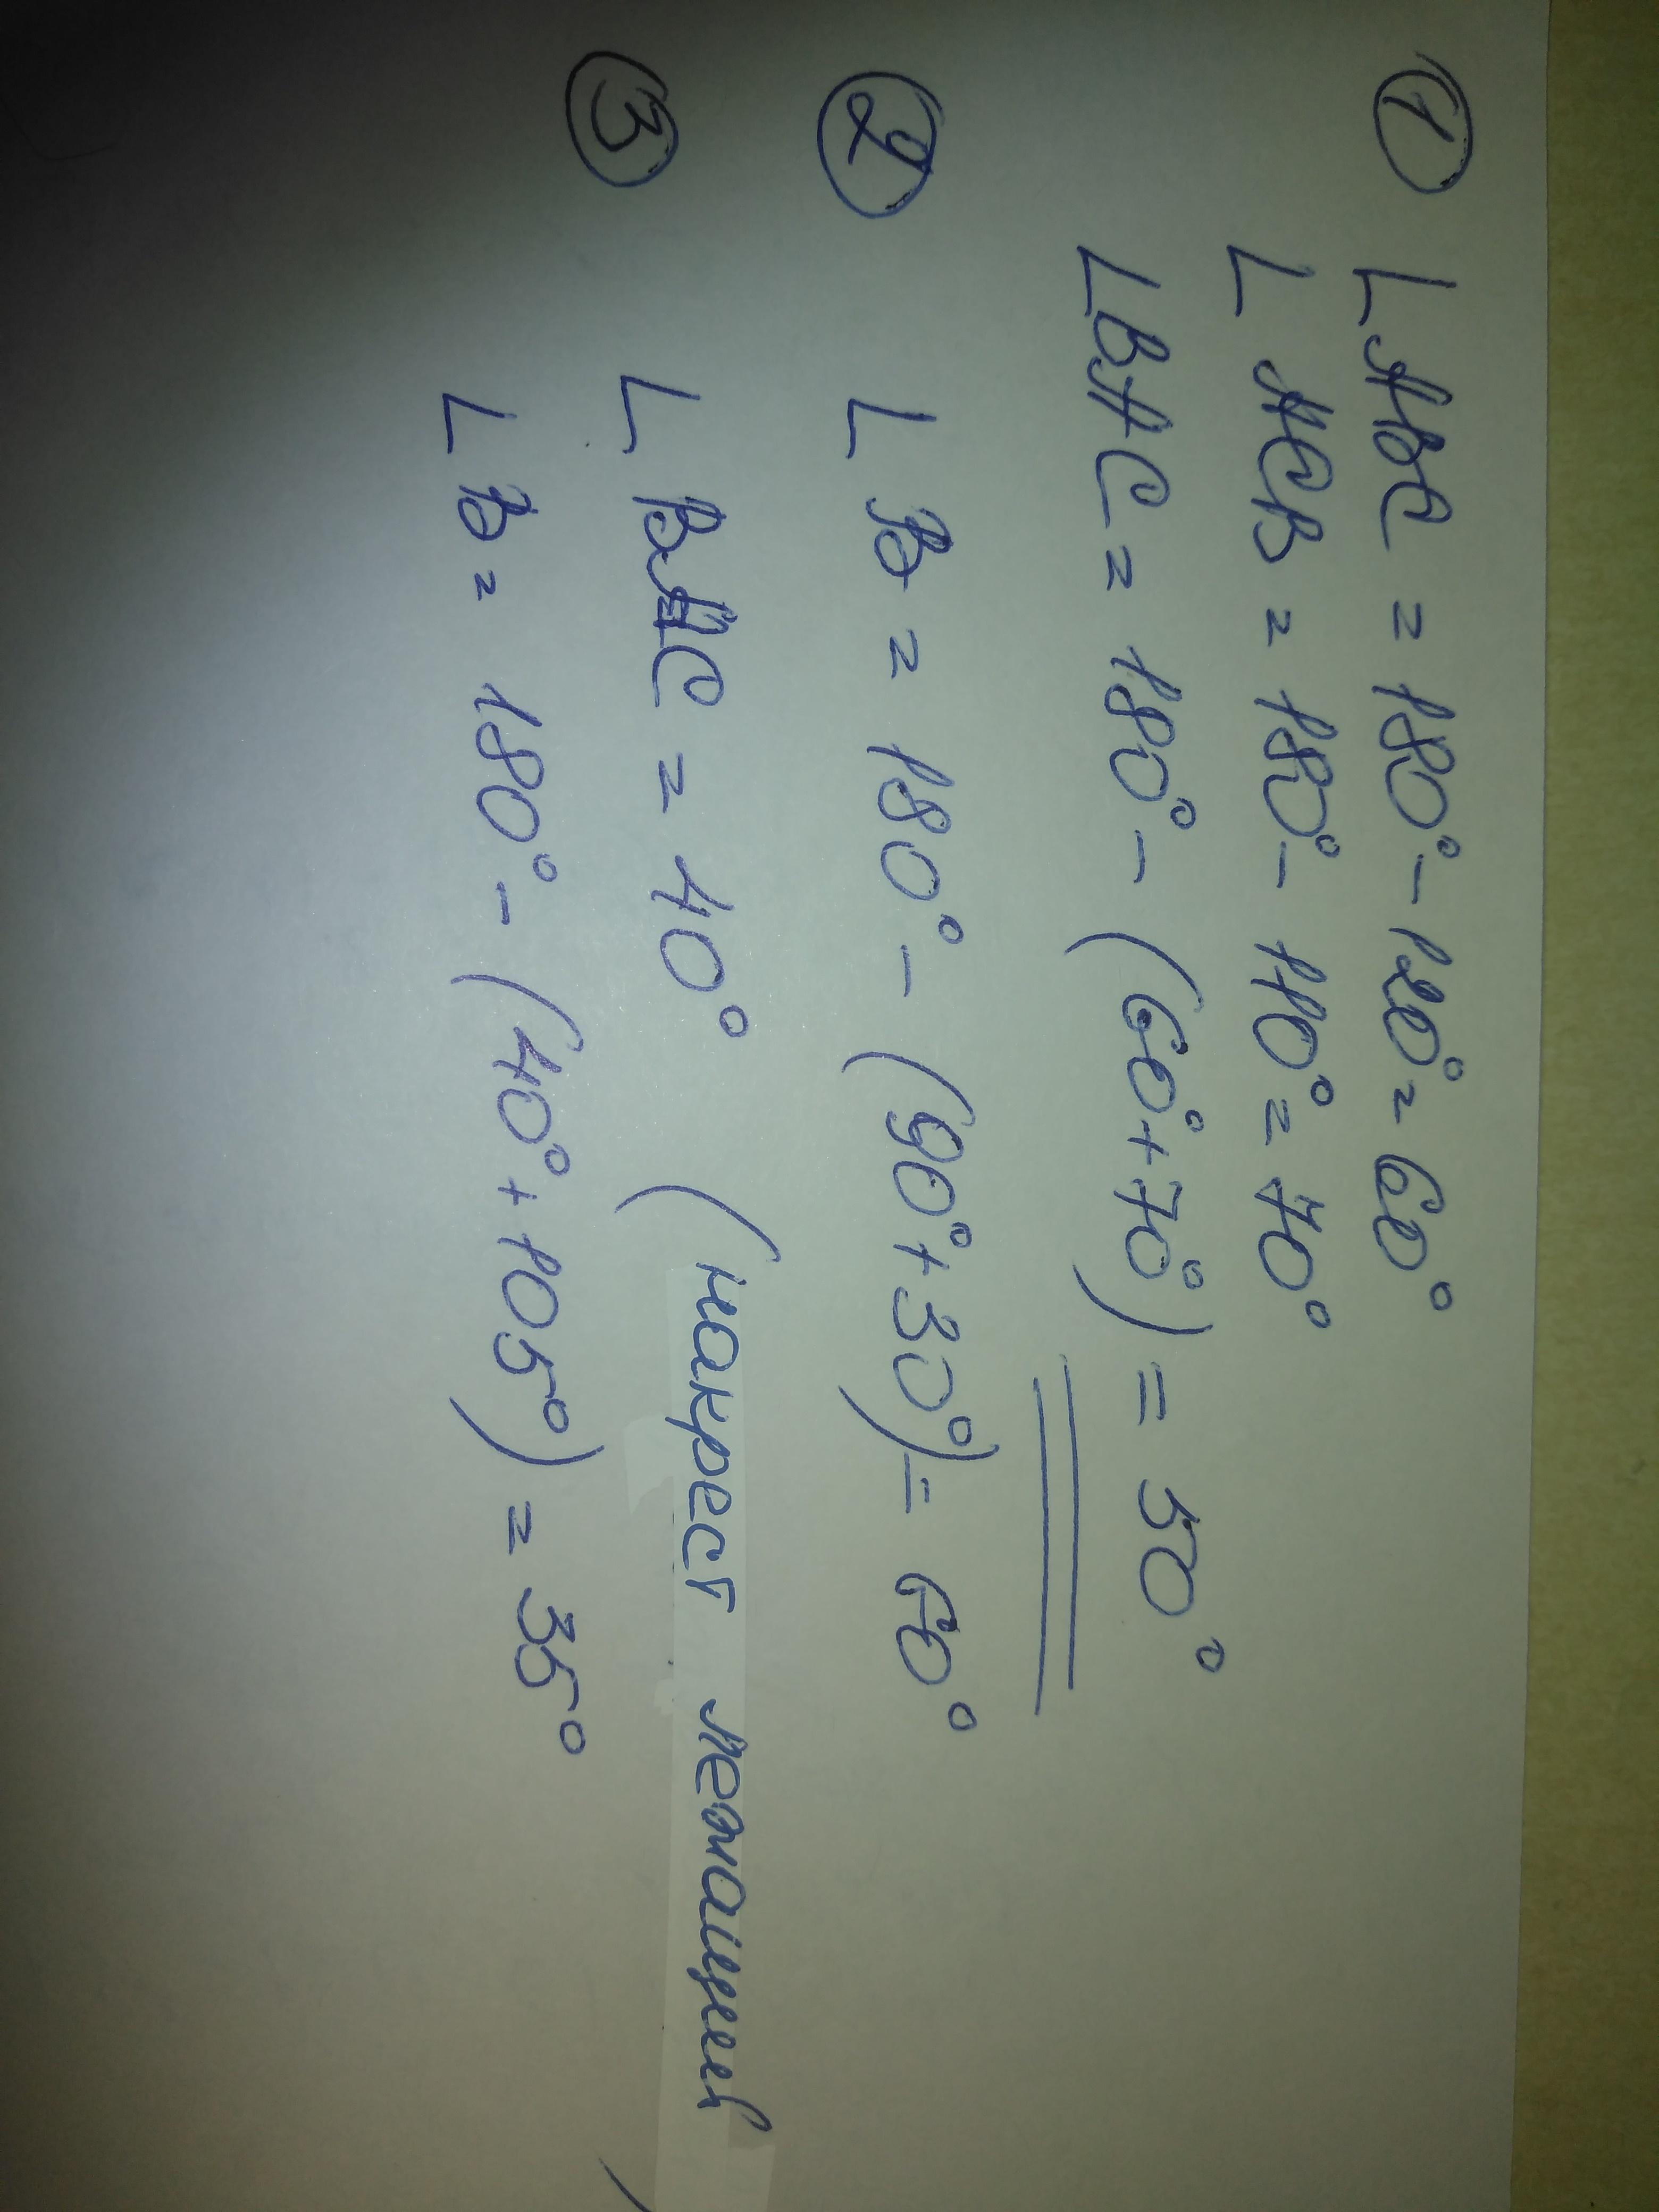 ① ∠ABC = 180° - 120° = 60°
∠ACB = 180° - 110° = 70°
∠BAC = 180° - (60° + 70°) = 50°
② ∠B = 180° - (90° + 30°) = 60°
③ ∠BAC = 40° (накрест лежащие)
∠B = 180° - (40° + 105°) = 35°